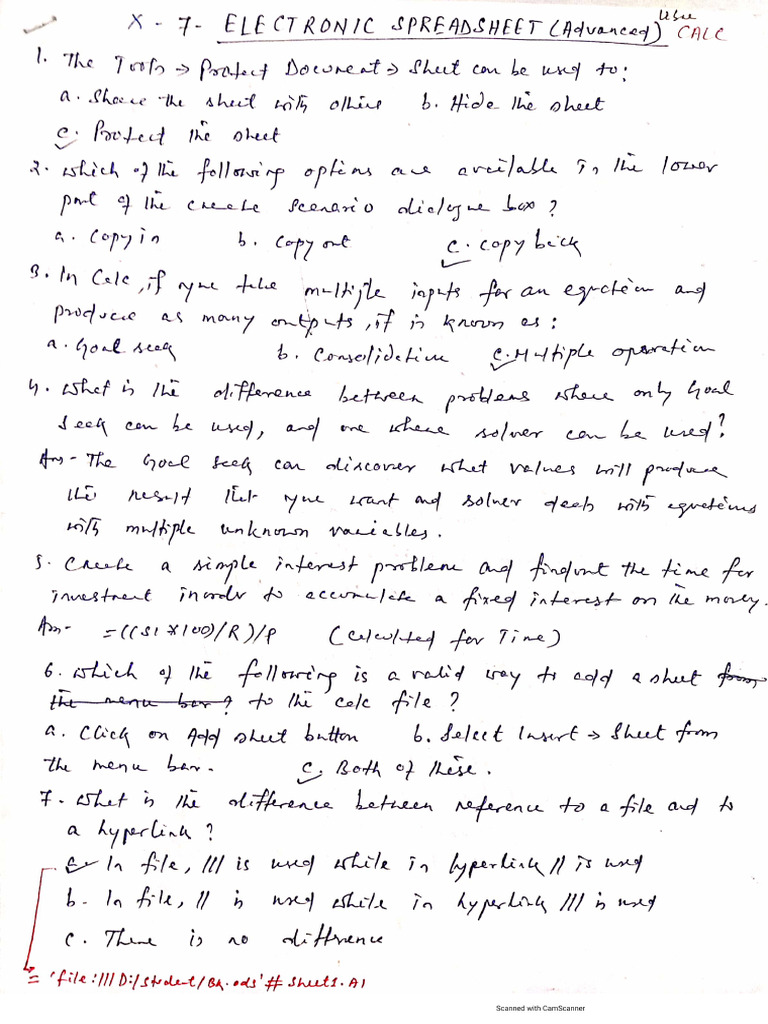 X - 7 - ELECTRONIC SPREADSHEET (Advanced) Libre CALC
1. The Tools → Protect Document → Sheet can be used to:
a. Share the sheet with others b. Hide the sheet
c. Protect the sheet
2. Which of the following options are available in the lower
part of the create scenario dialogue box?
a. Copy in b. Copy out c. Copy back
3. In Calc, if you take multiple inputs for an equation and
produce as many outputs, it is known as:
a. Goal seek b. Consolidation c. Multiple operation
4. What is the difference between problems where only Goal
Seek can be used, and one where solver can be used?
Ans- The Goal seek can discover what values will produce
the result that you want and solver deals with equations
with multiple unknown variables.
5. Create a simple interest problem and findout the time for
investment inorder to accumulate a fixed interest on the money.
Ans- =((SI*100)/R)/P (Calculated for Time)
6. Which of the following is a valid way to add a sheet from
the menu bar? to the calc file?
a. Click on Add sheet button b. Select Insert → Sheet from
the menu bar. c. Both of these.
7. What is the difference between reference to a file and to
a hyperlink?
a. In file, /// is used while in hyperlink // is used
b. In file, // is used while in hyperlink /// is used
c. There is no difference
= 'file:///D:/student/BR.ods'# Sheet1.A1
Scanned with CamScanner